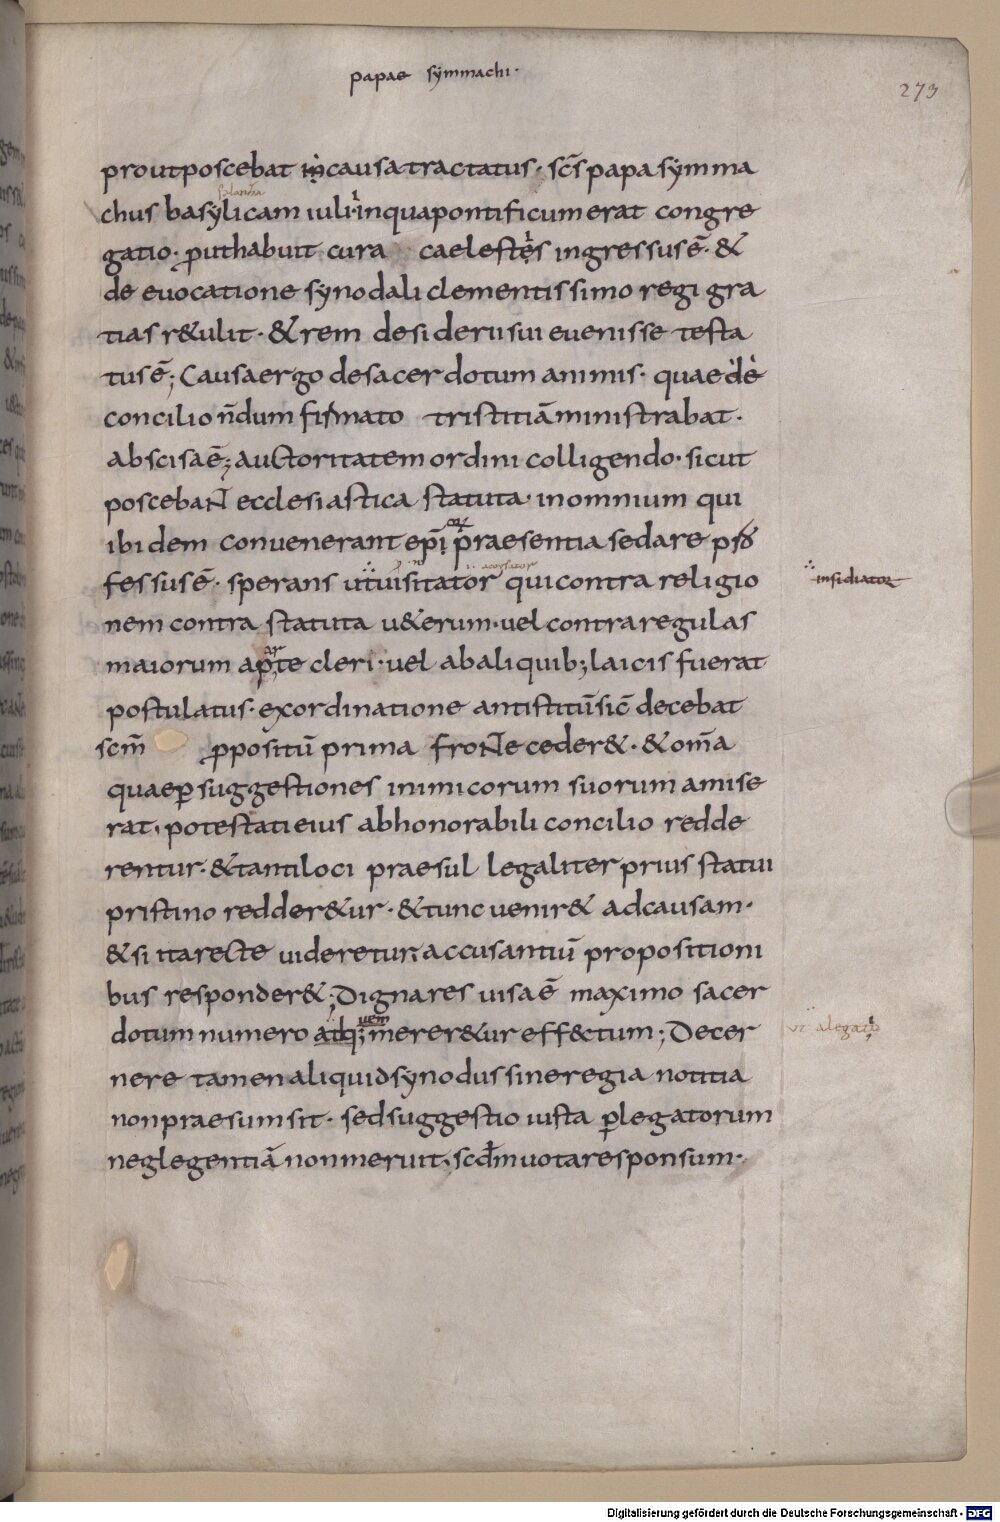 papae symmachi·
273
prout poscebat in causa tractatus· scs̄ papa symma
chus basylicam iuli· in qua pontificum erat congre
gatio· ꝓut habuit cura caelestis ingressus ē· &
de euocatione synodali clementissimo regi gra
tias r&ulit· & rem desiderii sui euenisse testa
tus ē; Causa ergo desacerdotum animis· quae de
concilio n̄dum firmato tristitiā ministrabat·
abscisa ē; auctoritatem ordini colligendo· sicut
poscebaNT ecclesiastica statuta· in omnium qui
ibidem conuenerant ep̄i praesentia sedare pro
fessus ē· sperans ut uisitator qui contra religio
insidiator
nem contra statuta u&erum· uel contra regulas
maiorum a parte cleri· uel ab aliquib; laicis fuerat
postulatus· ex ordinatione antistitū sic̄ decebat
scm̄ ꝓpositū prima froNTe ceder&· & om̄a
quae ꝑ suggestiones inimicorum suorum amise
rat· potestati eius ab honorabili concilio redde
rentur· & tanti loci praesul legaliter prius statui
pristino redder&ur· & tunc uenir& ad causam·
& si ita recte uideretur· accusantiū propositioni
bus responder&; Digna res uisa ē maximo sacer
dotum numero atq; uem merer&ur eff&ctum; Decer
nere tamen aliquid synodus sine regia notitia
non praesumsit· sed suggestio iusta ꝑ legatorum
neglegentiā non meruit· scd̄m uota responsum·
Digitalisierung gefördert durch die Deutsche Forschungsgemeinschaft - DFG